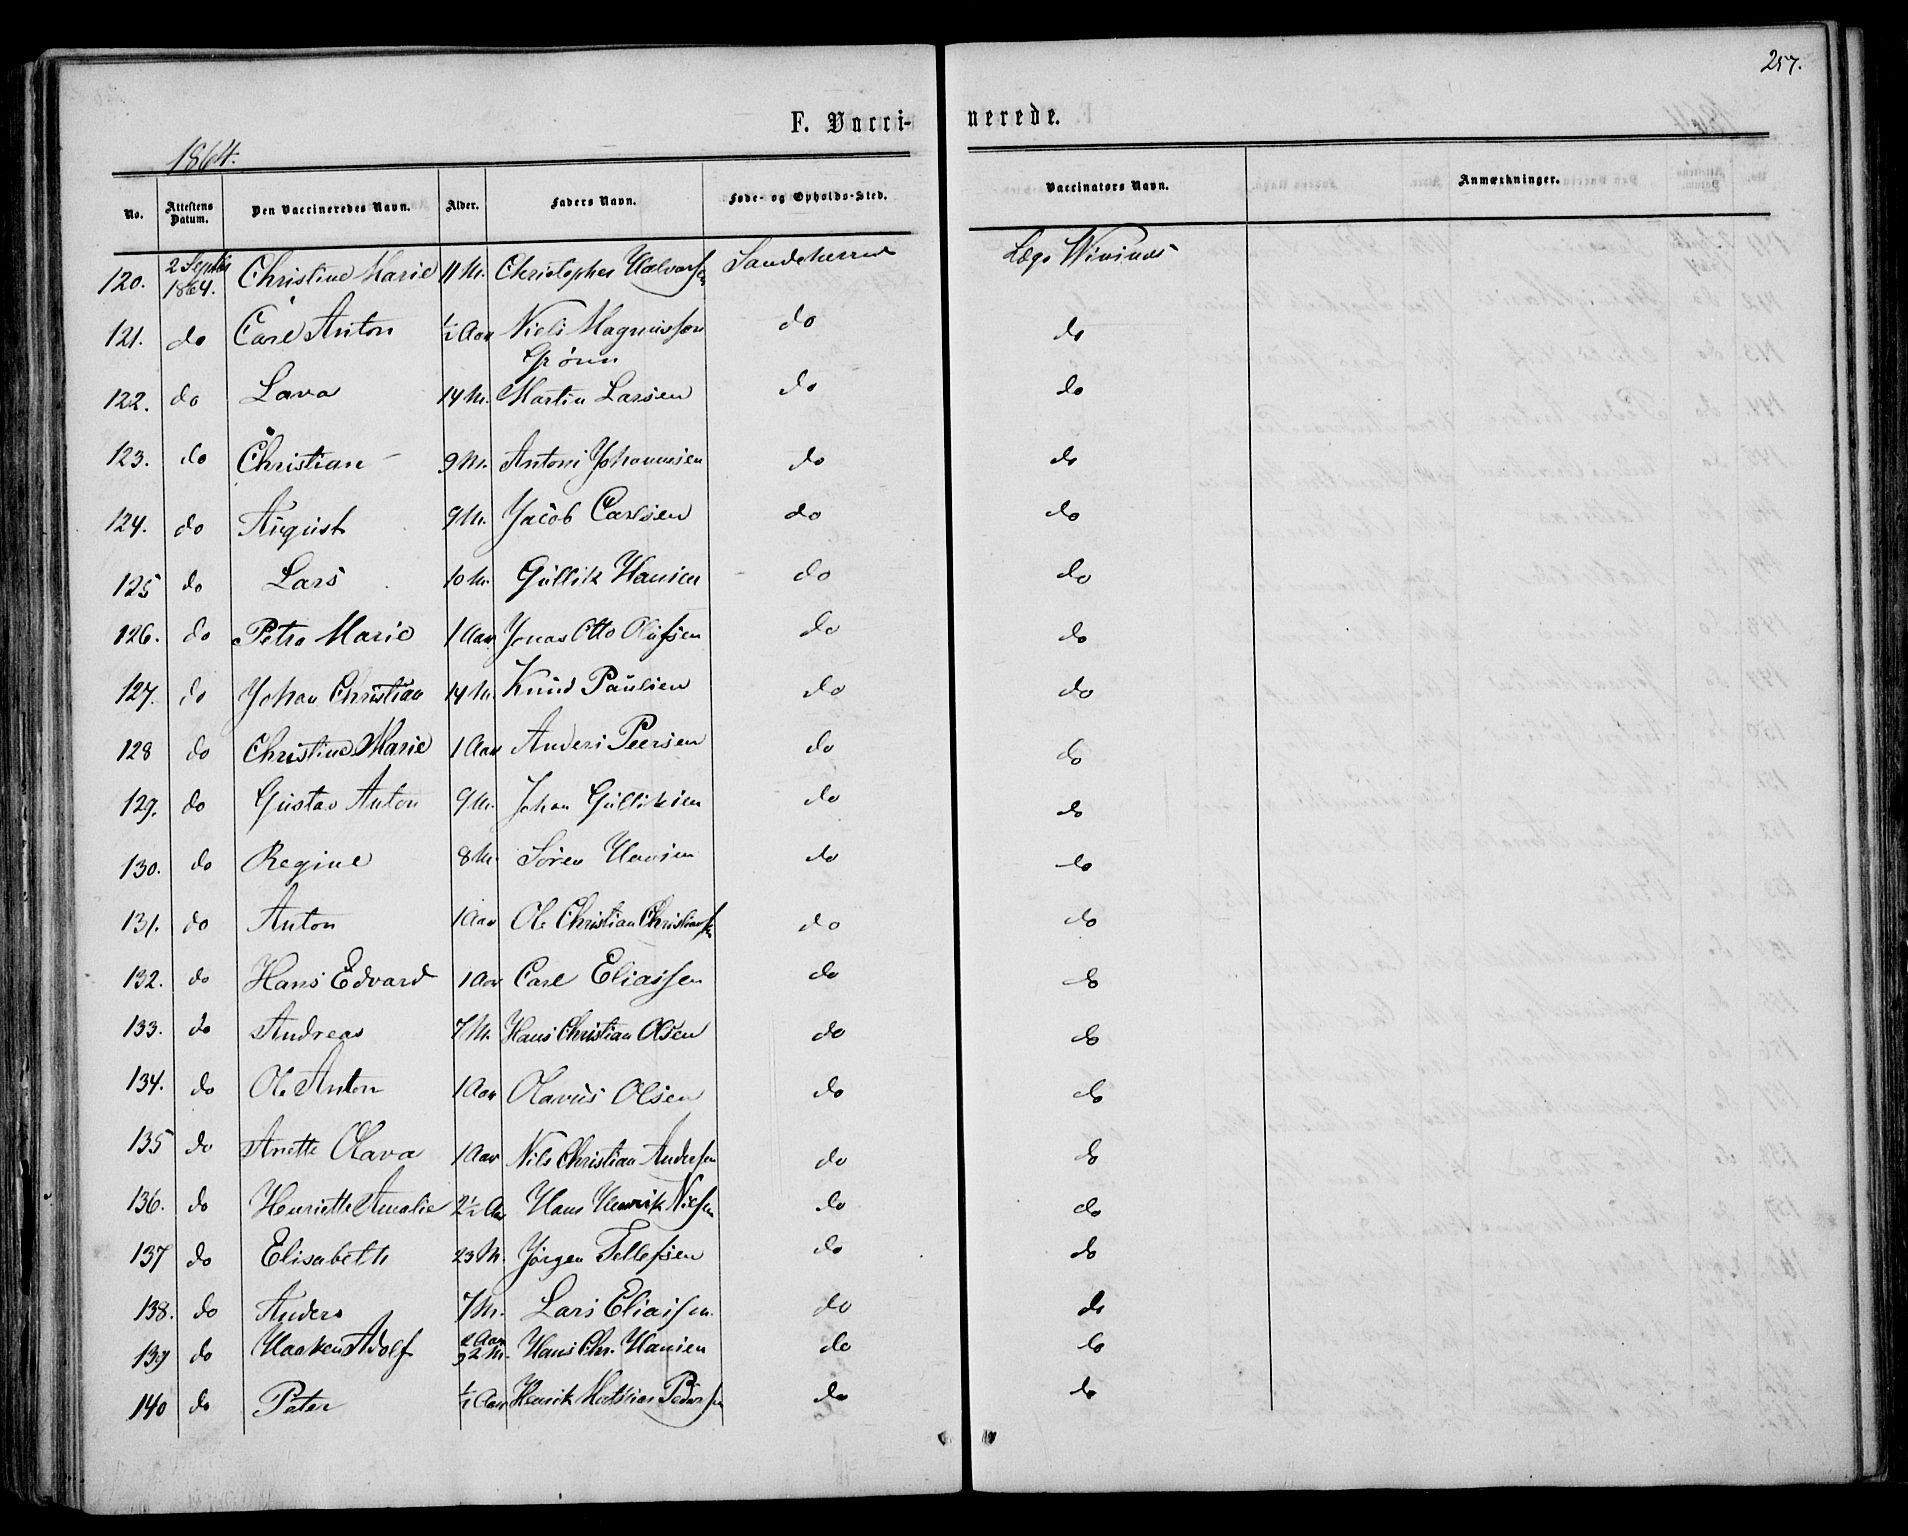 257.
F. Vacci- nerede.
1864.
No. Attestens Datum. Den Vaccineredes Navn. Alder. Faders Navn. Føde- og Opholds-Sted. Vaccinators Navn. Anmærkninger.
120. 2 Septbr 1864. Christine Marie 11 M. Christopher Halvorsen Sandeherred Læge
121. do Carl Anton ½ Aar Niels Magnussen Grønn do do
122. do Lava 14 M. Martin Larsen do do
123. do Christian 9 M. Antoni Johannsen do do
124. do August 9 M. Jacob Carlsen do do
125 do Lars 10 M. Gullik Hansen do do
126. do Petra Marie 1 Aar Jonas Otto Olufsen do do
127. do Johan Christian 14 M. Knud Paulsen do do
128 do Christine Marie 1 Aar Anders Peersen do do
129. do Gustav Anton 9 M. Johan Gulliksen do do
130. do Regine 8 M. Søren Hansen do do
131. do Anton 1 Aar Ole Christian Christiansen do do
132. do Hans Edvard 1 Aar Carl Eliassen do do
133. do Andreas 7 M. Hans Christian Olsen do do
134. do Ole Anton 1 Aar Olavus Olsen do do
135 do Anette Olava 1 Aar Nils Christian Andersen do do
136. do Henriette Amalie 2½ Aar Hans Henrik Nilsen do do
137 do Elisabeth 23 M. Jørgen Tellefsen do do
138. do Anders 7 M. Lars Eliassen do do
139 do Haaken Adolf 2 M. Hans Chr. Hansen do do
140 do Peter ½ Aar Henrik Mathias Pedersen do do